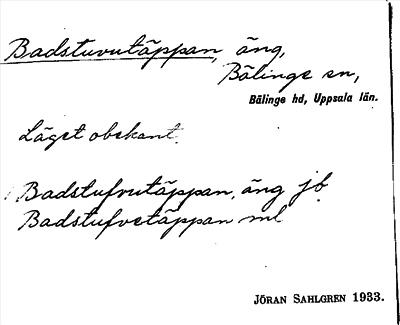 Badstuvutäppan, äng,
Bälinge sn,
Bälinge hd, Uppsala län.
Läget obekant.
Badstufvutäppan, äng jb
Badstufvetäppan ml
JÖRAN SAHLGREN 1933.